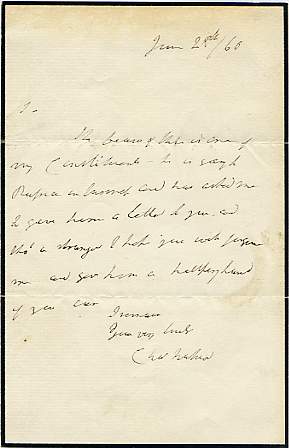 June 28th/60
The bearer of this is one of
my Constituents - he is going
Russia on business and has asked me
to give him a letter to you, and
tho' a stranger I hope you will forgive
me and give him a helping hand
if you can
I remain
Your very truly